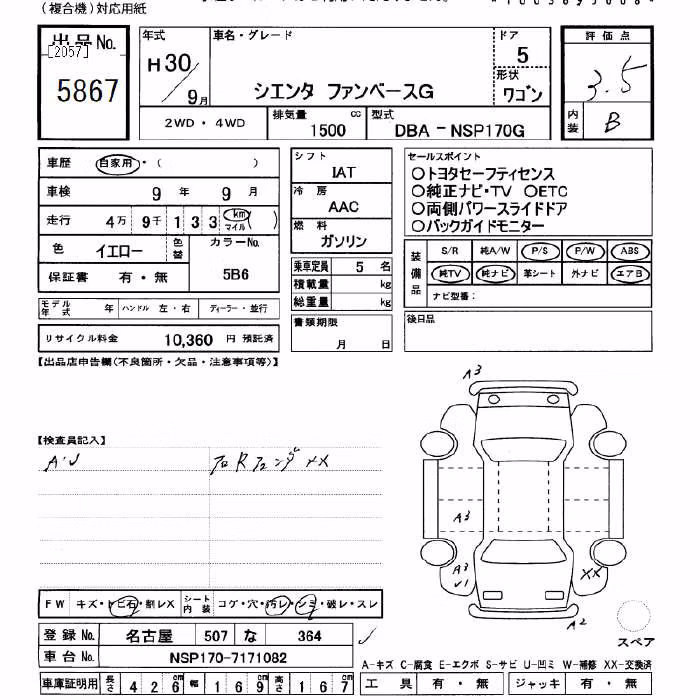 (複合機)対応用紙
出品No.
[2057]
5867
年式
H30
9月
車名・グレード
シエンタ ファンベースG
ドア
5
形状
ワゴン
2WD・4WD
排気量
1500
cc
型式
DBA-NSP170G
評価点
3.5
内装
B
車歴 自家用・( )
車検 9年 9月
走行 4万 9千 1 3 3 km マイル ( )
色 イエロー 色替 カラーNo.
保証書 有・無 5B6
モデル年式 年 ハンドル 左・右 ディーラー・並行
リサイクル料金 10,360 円 預託済
シフト
IAT
冷房
AAC
燃料
ガソリン
乗車定員 5 名
積載量 kg
総重量 kg
書類期限
月 日
セールスポイント
○トヨタセーフティセンス
○純正ナビ・TV ○ETC
○両側パワースライドドア
○バックガイドモニター
装備品
S/R 純A/W P/S P/W ABS
純TV 純ナビ 革シート 外ナビ エアB
ナビ型番:
後日品
【出品店申告欄(不良箇所・欠品・注意事項等)】
【検査員記入】
A・U
フロRフェンダ XX
A3
A3
A3
U1
XX
A2
スペア
FW キズ・トビ石・割レX シート内装 コゲ・穴・汚レ・シミ・破レ・スレ
登録No. 名古屋 507 な 364
車台No. NSP170-7171082
車庫証明用 長さ 4 2 6 cm 幅 1 6 9 cm 高さ 1 6 7 cm
A-キズ C-腐食 E-エクボ S-サビ U-凹ミ W-補修 XX-交換済
工具 有・無 ジャッキ 有・無